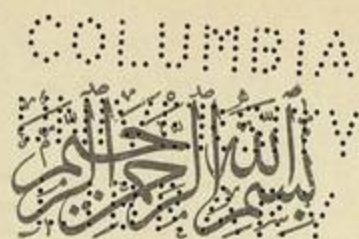 COLUMBIA
بسم الله الرحمن الرحيم